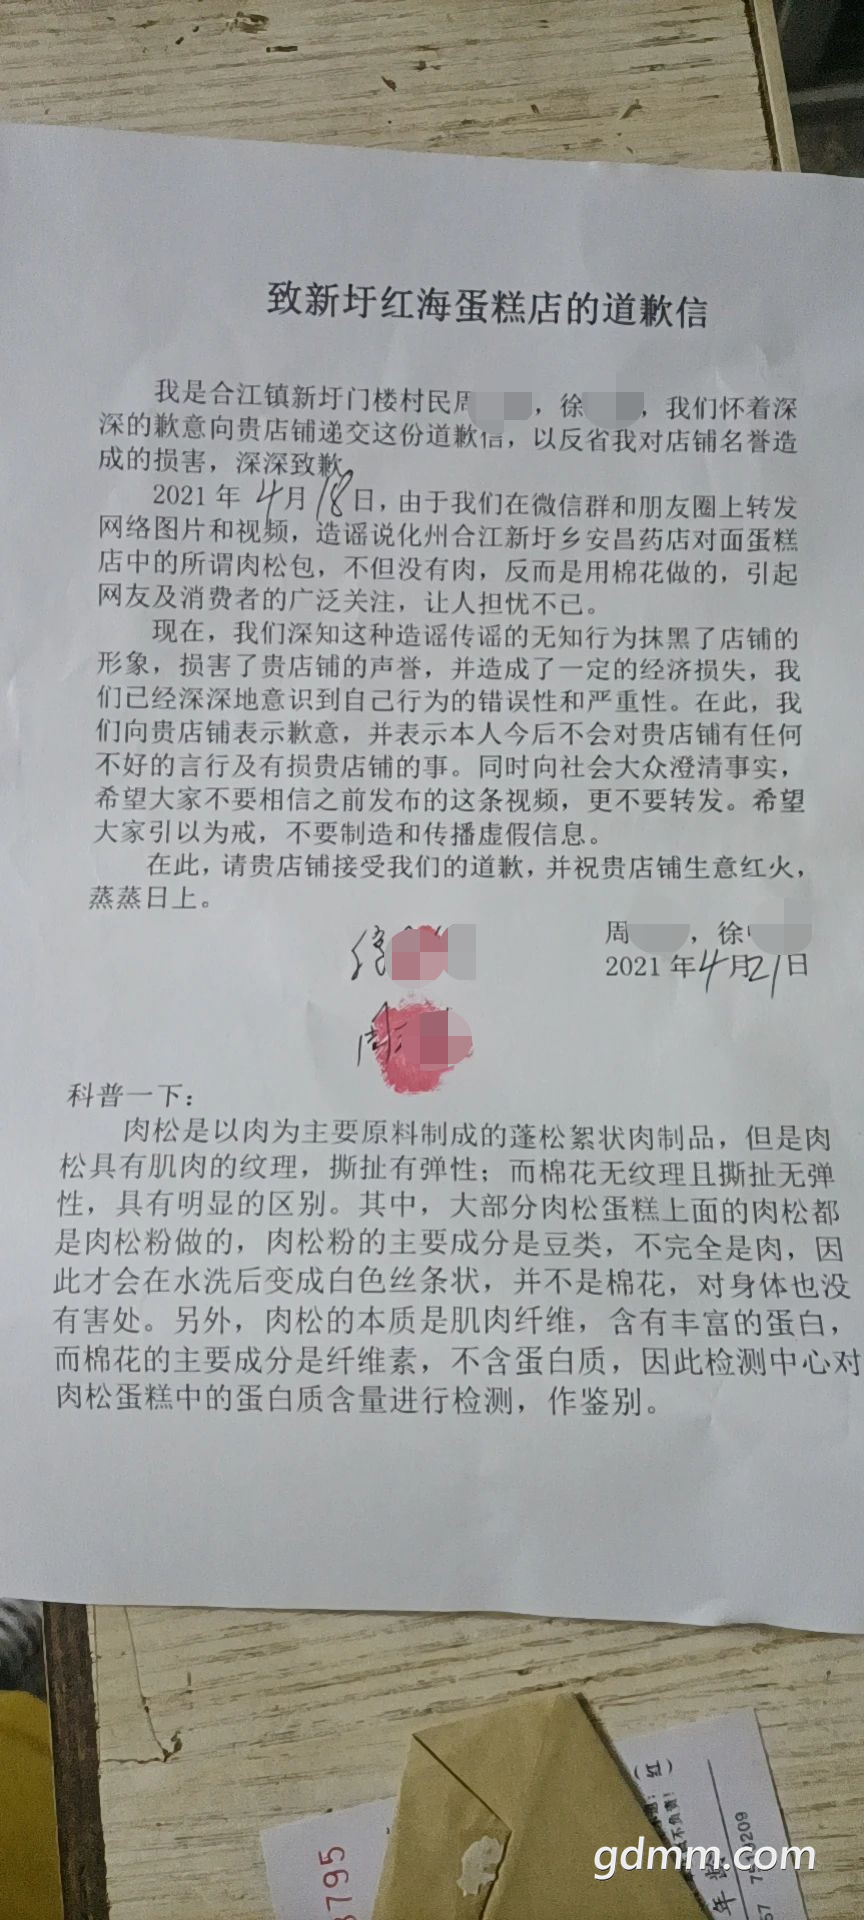 致新圩红海蛋糕店的道歉信
我是合江镇新圩门楼村民周，徐，我们怀着深
深的歉意向贵店铺递交这份道歉信，以反省我对店铺名誉造
成的损害，深深致歉
2021年4月18日，由于我们在微信群和朋友圈上转发
网络图片和视频，造谣说化州合江新圩乡安昌药店对面蛋糕
店中的所谓肉松包，不但没有肉，反而是用棉花做的，引起
网友及消费者的广泛关注，让人担忧不已。
现在，我们深知这种造谣传谣的无知行为抹黑了店铺的
形象，损害了贵店铺的声誉，并造成了一定的经济损失，我
们已经深深地意识到自己行为的错误性和严重性。在此，我
们向贵店铺表示歉意，并表示本人今后不会对贵店铺有任何
不好的言行及有损贵店铺的事。同时向社会大众澄清事实，
希望大家不要相信之前发布的这条视频，更不要转发。希望
大家引以为戒，不要制造和传播虚假信息。
在此，请贵店铺接受我们的道歉，并祝贵店铺生意红火，
蒸蒸日上。
周，徐
2021年4月21日
徐
周
科普一下：
肉松是以肉为主要原料制成的蓬松絮状肉制品，但是肉
松具有肌肉的纹理，撕扯有弹性；而棉花无纹理且撕扯无弹
性，具有明显的区别。其中，大部分肉松蛋糕上面的肉松都
是肉松粉做的，肉松粉的主要成分是豆类，不完全是肉，因
此才会在水洗后变成白色丝条状，并不是棉花，对身体也没
有害处。另外，肉松的本质是肌肉纤维，含有丰富的蛋白，
而棉花的主要成分是纤维素，不含蛋白质，因此检测中心对
肉松蛋糕中的蛋白质含量进行检测，作鉴别。
（红）
不负责！
年
209
795
gdmm.com